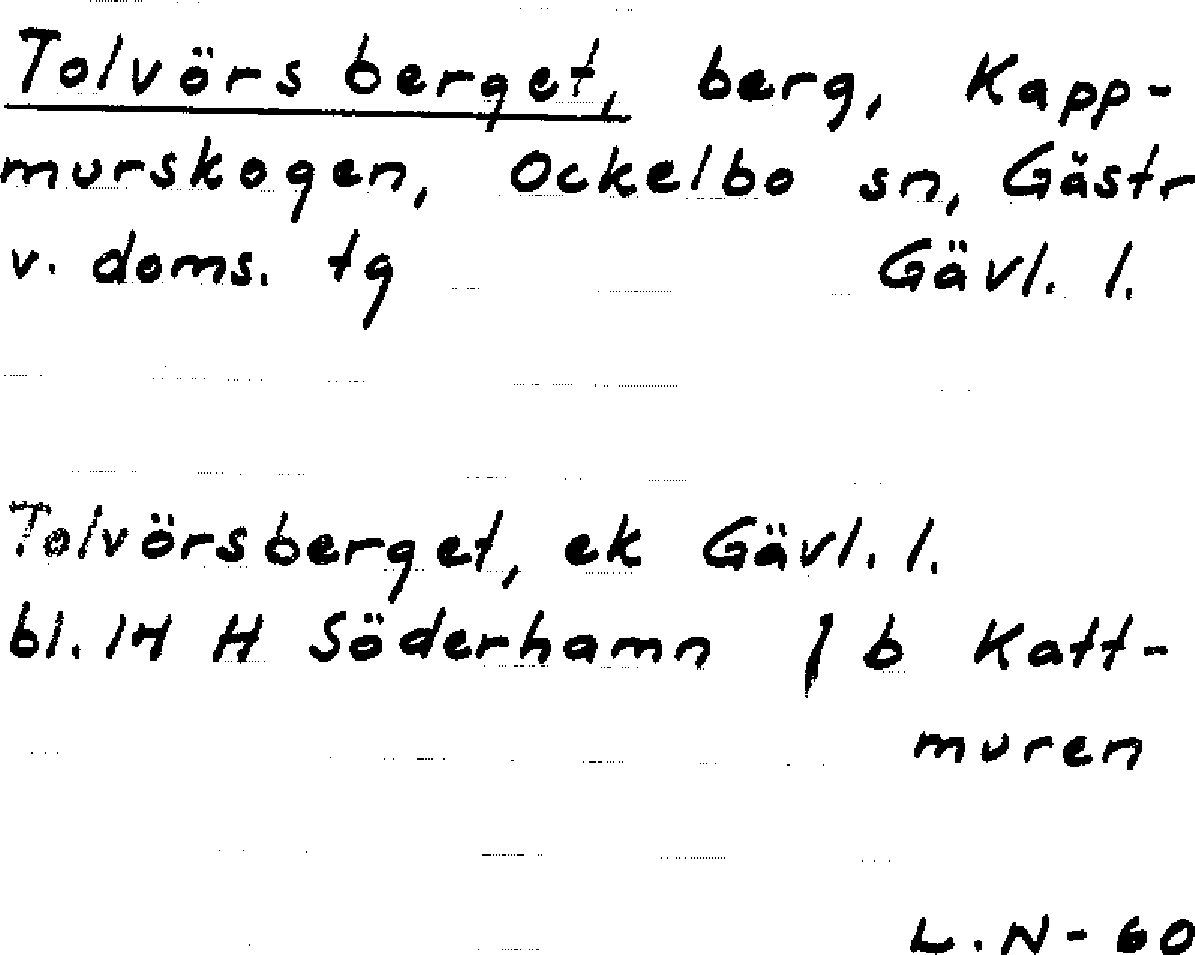 Tolvörsberget, berg, Kapp-
murskogen, Ockelbo sn, Gästr
v. doms. tg Gävl. l.
Tolvörsberget, ek Gävl. l.
bl. 14 H Söderhamn f b Katt-
muren
L.N-60